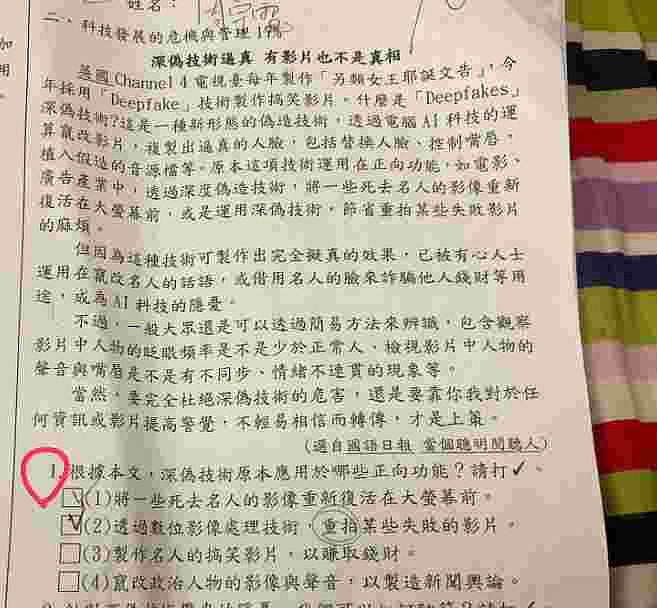 姓名：
二、科技發展的危機與管理
深偽技術逼真 有影片也不是真相
英國 Channel 4 電視臺每年製作「另類女王耶誕文告」，今
年採用「Deepfake」技術製作搞笑影片。什麼是「Deepfakes」
深偽技術?這是一種新形態的偽造技術，透過電腦 AI 科技的運
算竄改影片，複製出逼真的人臉，包括替換人臉、控制嘴唇，
植入假造的音源檔等。原本這項技術運用在正向功能，如電影、
廣告產業中，透過深度偽造技術，將一些死去名人的影像重新
復活在大螢幕前，或是運用深偽技術，節省重拍某些失敗影片
的麻煩。
但因為這種技術可製作出完全擬真的效果，已被有心人士
運用在竄改名人的話語，或借用名人的臉來詐騙他人錢財等用
途，成為 AI 科技的隱憂。
不過，一般大眾還是可以透過簡易方法來辨識，包含觀察
影片中人物的眨眼頻率是不是少於正常人、檢視影片中人物的
聲音與嘴唇是不是有不同步、情緒不連貫的現象等。
當然，要完全杜絕深偽技術的危害，還是要靠你我對於任
何資訊或影片提高警覺，不輕易相信而轉傳，才是上策。
(選自國語日報 當個聰明閱聽人)
1.根據本文，深偽技術原本應用於哪些正向功能？請打✓。
□(1)將一些死去名人的影像重新復活在大螢幕前。
□(2)透過數位影像處理技術，重拍某些失敗的影片。
□(3)製作名人的搞笑影片，以賺取錢財。
□(4)竄改政治人物的影像與聲音，以製造新聞輿論。